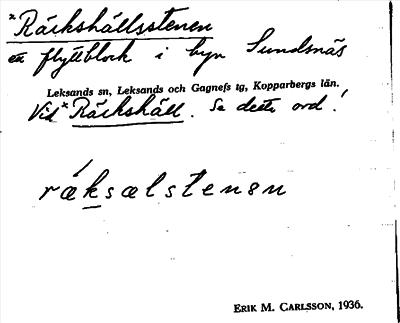 *Räckshällsstenen
ett flyttblock i byn Sundsnäs
Leksands sn, Leksands och Gagnefs tg, Kopparbergs län.
Vid *Räckshäll. Se detta ord!
ræksælstenən
ERIK M. CARLSSON, 1936.